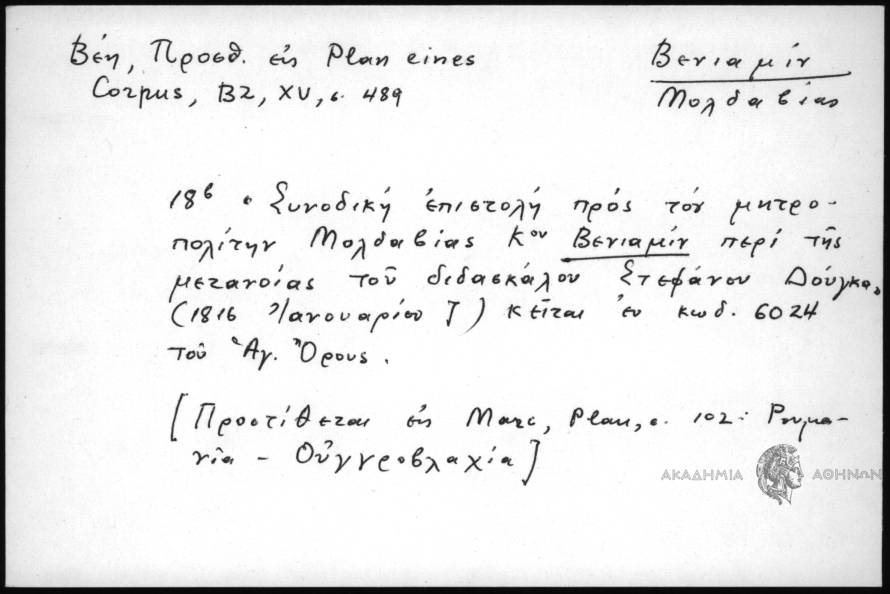 Βέη, Προσθ. εἰς Plan eines
Corpus, ΒΖ, XV, σ. 489
Βενιαμίν
Μολδαβίας
18β. Συνοδική ἐπιστολή πρός τόν μητρο-
πολίτην Μολδαβίας Κον Βενιαμίν περί τῆς
μετανοίας τοῦ διδασκάλου Στεφάνου Δούγκα,
(1816 Ἰανουαρίου) κεῖται ἐν κωδ. 6024
τοῦ Ἁγ. Ὄρους.
[Προστίθεται εἰς Marc, Plan, σ. 102: Ρουμα-
νία - Οὐγγροβλαχία]
ΑΚΑΔΗΜΙΑ ΑΘΗΝΩΝ